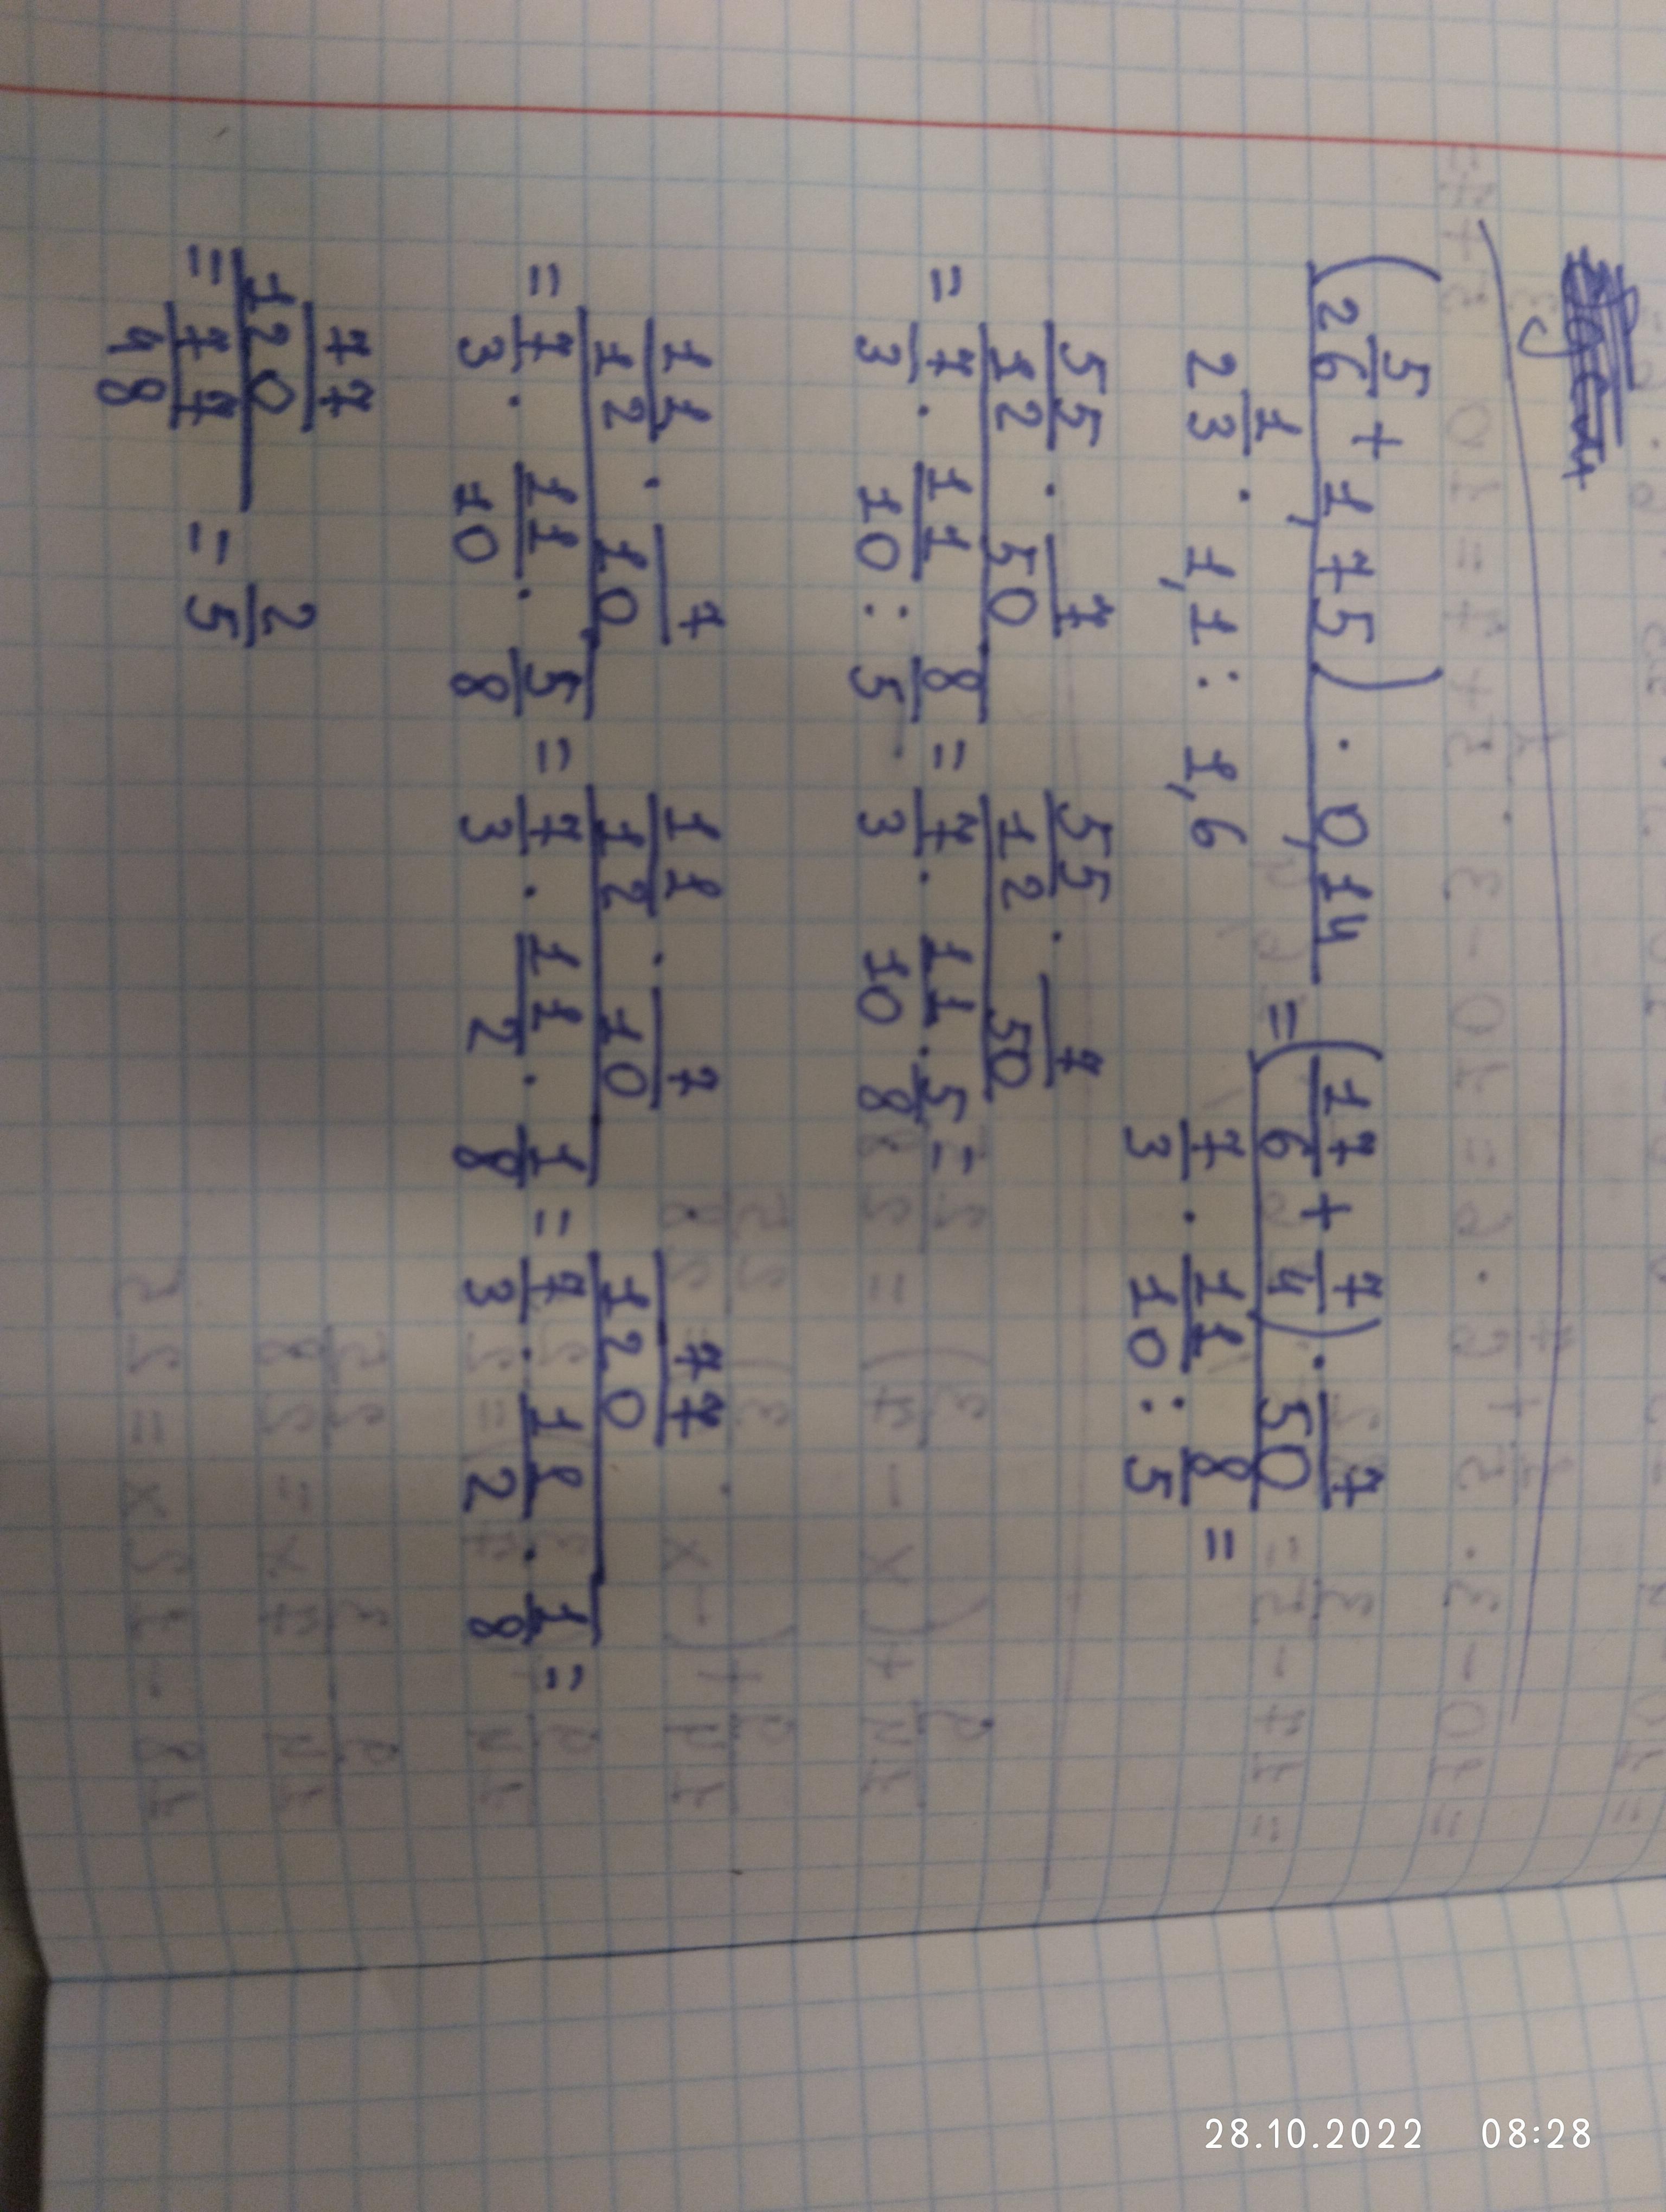 (2 5/6 + 1,75) · 0,14 / 2 1/3 · 1,1 : 1,6 = (17/6 + 7/4) · 7/50 / 7/3 · 11/10 : 8/5 =
= 55/12 · 7/50 / 7/3 · 11/10 : 8/5 = 55/12 · 7/50 / 7/3 · 11/10 · 5/8 =
= 11/12 · 7/10 / 7/3 · 11/10 · 5/8 = 11/12 · 7/10 / 7/3 · 11/2 · 1/8 = 77/120 / 7/3 · 11/2 · 1/8 =
= 77/120 / 77/48 = 2/5
28.10.2022 08:28